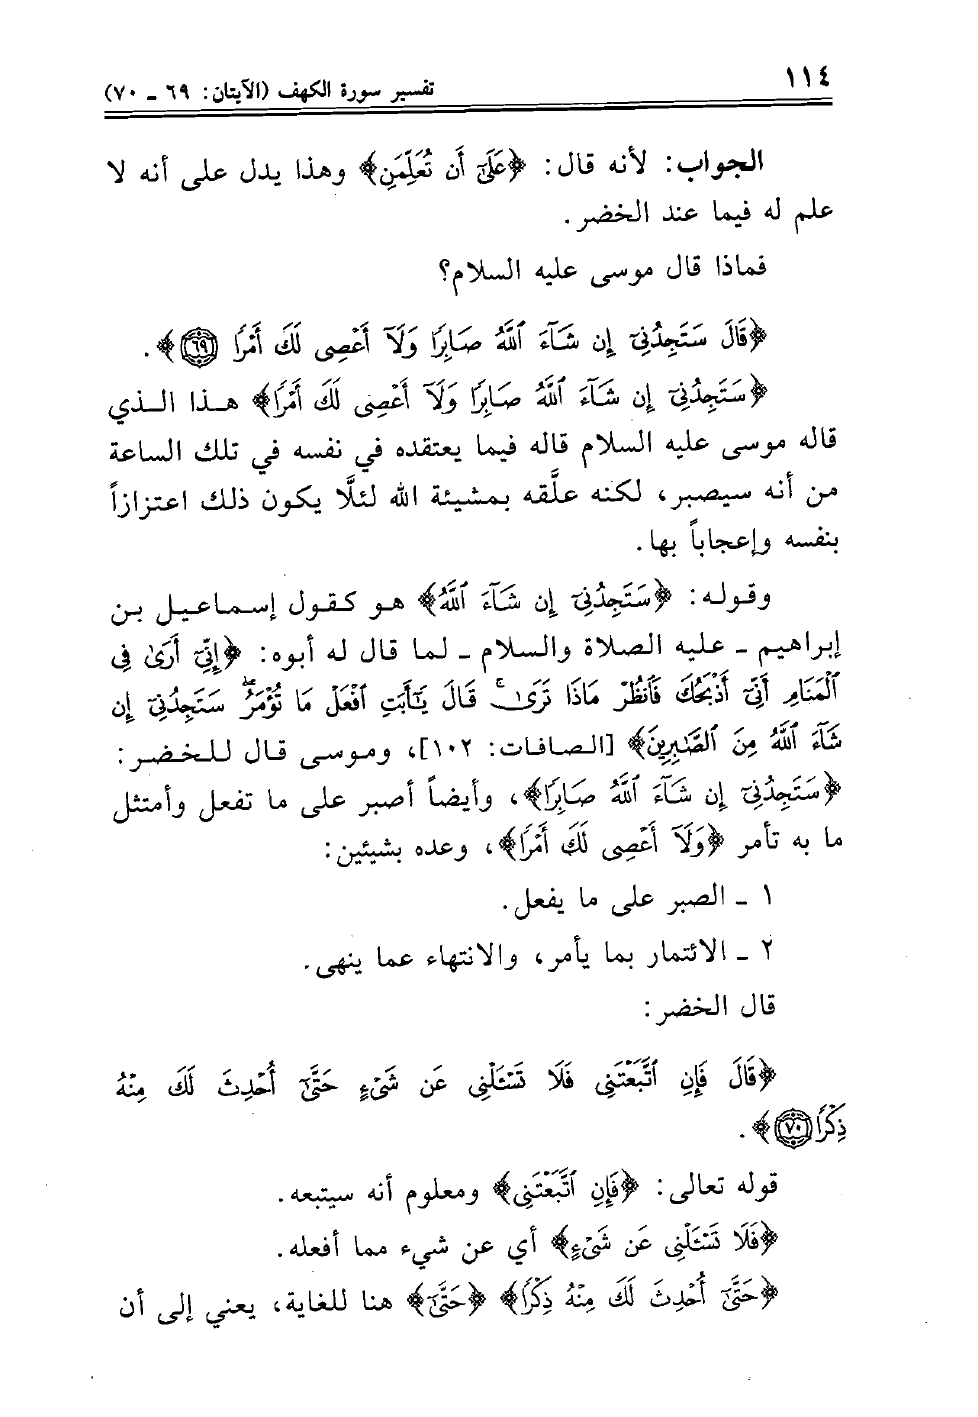 ١١٤
تفسير سورة الكهف (الآيتان: ٦٩ ـ ٧٠)
الجواب: لأنه قال: ﴿عَلَىٰٓ أَن تُعَلِّمَنِ﴾ وهذا يدل على أنه لا
علم له فيما عند الخضر.
فماذا قال موسى عليه السلام؟
﴿قَالَ سَتَجِدُنِىٓ إِن شَآءَ ٱللَّهُ صَابِرًا وَلَآ أَعْصِى لَكَ أَمْرًا ٦٩﴾.
﴿سَتَجِدُنِىٓ إِن شَآءَ ٱللَّهُ صَابِرًا وَلَآ أَعْصِى لَكَ أَمْرًا﴾ هـذا الـذي
قاله موسى عليه السلام قاله فيما يعتقده في نفسه في تلك الساعة
من أنه سيصبر، لكنه علَّقه بمشيئة الله لئلَّا يكون ذلك اعتزازاً
بنفسه وإعجاباً بها.
وقوله: ﴿سَتَجِدُنِىٓ إِن شَآءَ ٱللَّهُ﴾ هو كقول إسماعيل بن
إبراهيم ـ عليه الصلاة والسلام ـ لما قال له أبوه: ﴿إِنِّىٓ أَرَىٰ فِى
ٱلْمَنَامِ أَنِّىٓ أَذْبَحُكَ فَٱنظُرْ مَاذَا تَرَىٰ ۚ قَالَ يَٰٓأَبَتِ ٱفْعَلْ مَا تُؤْمَرُ ۖ سَتَجِدُنِىٓ إِن
شَآءَ ٱللَّهُ مِنَ ٱلصَّٰبِرِينَ﴾ [الصافات: ١٠٢]، وموسى قال للخضر:
﴿سَتَجِدُنِىٓ إِن شَآءَ ٱللَّهُ صَابِرًا﴾، وأيضاً أصبر على ما تفعل وأمتثل
ما به تأمر ﴿وَلَآ أَعْصِى لَكَ أَمْرًا﴾، وعده بشيئين:
١ ـ الصبر على ما يفعل.
٢ ـ الائتمار بما يأمر، والانتهاء عما ينهى.
قال الخضر:
﴿قَالَ فَإِنِ ٱتَّبَعْتَنِى فَلَا تَسْـَٔلْنِى عَن شَىْءٍ حَتَّىٰٓ أُحْدِثَ لَكَ مِنْهُ
ذِكْرًا ٧٠﴾.
قوله تعالى: ﴿فَإِنِ ٱتَّبَعْتَنِى﴾ ومعلوم أنه سيتبعه.
﴿فَلَا تَسْـَٔلْنِى عَن شَىْءٍ﴾ أي عن شيء مما أفعله.
﴿حَتَّىٰٓ أُحْدِثَ لَكَ مِنْهُ ذِكْرًا﴾ ﴿حَتَّىٰٓ﴾ هنا للغاية، يعني إلى أن